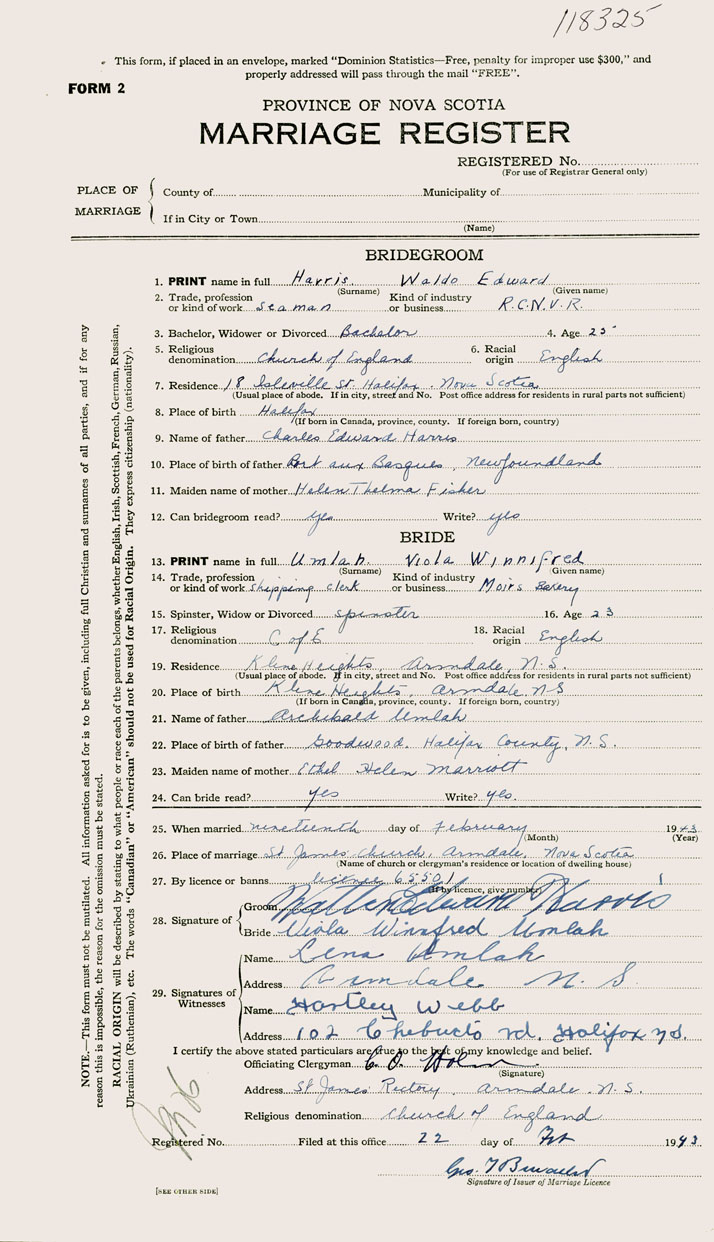 118325
This form, if placed in an envelope, marked "Dominion Statistics—Free, penalty for improper use $300," and
properly addressed will pass through the mail "FREE".
FORM 2
PROVINCE OF NOVA SCOTIA
MARRIAGE REGISTER
REGISTERED No.
(For use of Registrar General only)
PLACE OF MARRIAGE
County of
Municipality of
If in City or Town
(Name)
BRIDEGROOM
1. PRINT name in full Harris Waldo Edward
(Surname) (Given name)
2. Trade, profession or kind of work seaman Kind of industry or business R.C.N.V.R.
3. Bachelor, Widower or Divorced Bachelor 4. Age 25
5. Religious denomination Church of England 6. Racial origin English
7. Residence 18 Isleville St. Halifax. Nova Scotia
(Usual place of abode. If in city, street and No. Post office address for residents in rural parts not sufficient)
8. Place of birth Halifax
(If born in Canada, province, county. If foreign born, country)
9. Name of father Charles Edward Harris
10. Place of birth of father Port aux Basques, Newfoundland
11. Maiden name of mother Helen Thelma Fisher
12. Can bridegroom read? yes Write? yes
BRIDE
13. PRINT name in full Umlah. Viola Winnifred
(Surname) (Given name)
14. Trade, profession or kind of work shipping clerk Kind of industry or business Moirs Bakery
15. Spinster, Widow or Divorced spinster 16. Age 23
17. Religious denomination C of E 18. Racial origin English
19. Residence Kline Heights, Armdale, N.S.
(Usual place of abode. If in city, street and No. Post office address for residents in rural parts not sufficient)
20. Place of birth Kline Heights, Armdale, N.S
(If born in Canada, province, county. If foreign born, country)
21. Name of father Archibald Umlah
22. Place of birth of father Goodwood. Halifax County, N.S.
23. Maiden name of mother Ethel Helen Marriott
24. Can bride read? yes Write? yes.
25. When married nineteenth day of February 1943
(Month) (Year)
26. Place of marriage St James Church, Armdale, Nova Scotia
(Name of church or clergyman's residence or location of dwelling house)
27. By licence or banns licence 65501
(If by licence, give number)
28. Signature of
Groom Edward Harris
Bride Viola Winnifred Umlah
29. Signatures of Witnesses
Name Lena Umlah
Address Armdale N. S.
Name Hartley Webb
Address 102 Chebucto rd. Halifax NS.
I certify the above stated particulars are true to the best of my knowledge and belief.
Officiating Clergyman
(Signature)
Address St James Rectory, Armdale N. S.
Religious denomination Church of England
Registered No. Filed at this office 22 day of Feb 1943
Geo.
Signature of Issuer of Marriage Licence
[SEE OTHER SIDE]
NOTE.—This form must not be mutilated. All information asked for is to be given, including full Christian and surnames of all parties, and if for any
reason this is impossible, the reason for the omission must be stated.
RACIAL ORIGIN will be described by stating to what people or race each of the parents belongs, whether English, Irish, Scottish, French, German, Russian,
Ukrainian (Ruthenian), etc. The words "Canadian" or "American" should not be used for Racial Origin. They express citizenship (nationality).